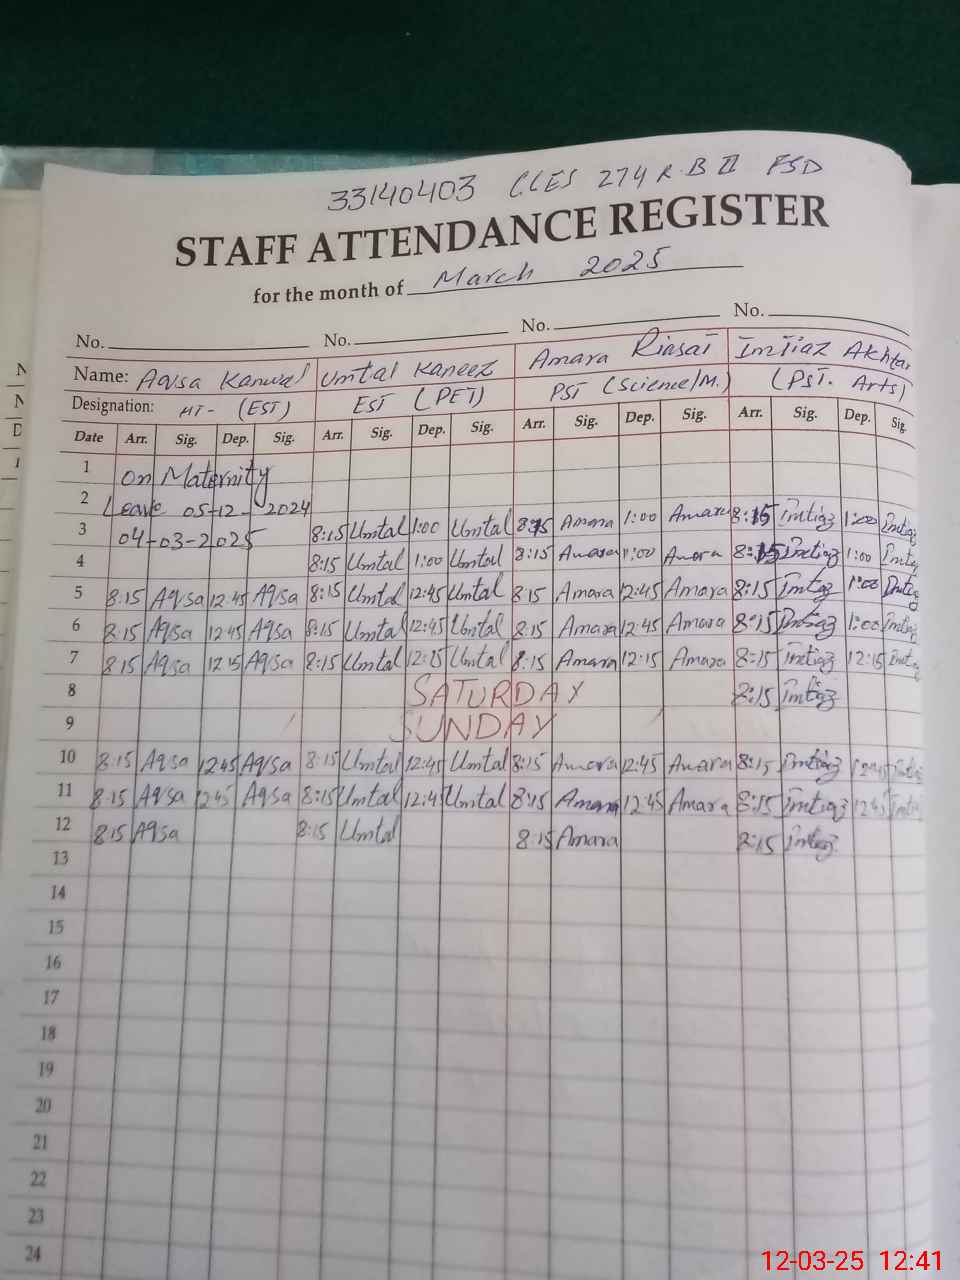 33140403 C.LES 274 R.B II FSD
STAFF ATTENDANCE REGISTER
for the month of March 2025
No. No. No. No.
Name: Aqsa Kanwal Umtal Kaneez Amara Riasat Imtiaz Akhtar
Designation: HT- (EST) EST (PET) PST (Science/M.) (PST. Arts)
Date Arr. Sig. Dep. Sig. Arr. Sig. Dep. Sig. Arr. Sig. Dep. Sig. Arr. Sig. Dep. Sig.
1 On Maternity
2 Leave 05-12-2024
3 04-03-2025 8:15 Umtal 1:00 Umtal 8:15 Amara 1:00 Amara 8:15 Imtiaz 1:00 Imtiaz
4 8:15 Umtal 1:00 Umtal 8:15 Amara 1:00 Amara 8:15 Imtiaz 1:00 Imtiaz
5 8:15 Aqsa 12:45 Aqsa 8:15 Umtal 12:45 Umtal 8:15 Amara 12:45 Amara 8:15 Imtiaz 1:00 Imtiaz
6 8:15 Aqsa 12:45 Aqsa 8:15 Umtal 12:45 Umtal 8:15 Amara 12:45 Amara 8:15 Imtiaz 1:00 Imtiaz
7 8:15 Aqsa 12:15 Aqsa 8:15 Umtal 12:15 Umtal 8:15 Amara 12:15 Amara 8:15 Imtiaz 12:15 Imtia
8 SATURDAY 8:15 Imtiaz
9 SUNDAY
10 8:15 Aqsa 12:45 Aqsa 8:15 Umtal 12:45 Umtal 8:15 Amara 12:45 Amara 8:15 Imtiaz 12:45 Imtiaz
11 8:15 Aqsa 12:45 Aqsa 8:15 Umtal 12:45 Umtal 8:15 Amara 12:45 Amara 8:15 Imtiaz 12:45 Imtia
12 8:15 Aqsa 8:15 Umtal 8:15 Amara 8:15 Imtiaz
13
14
15
16
17
18
19
20
21
22
23
24
12-03-25 12:41